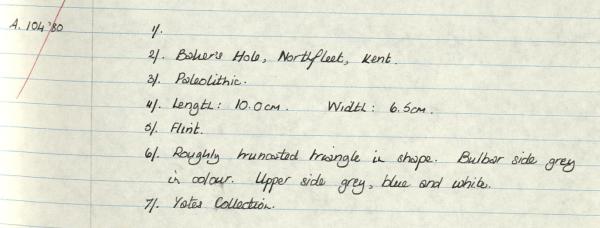 A. 104'80
1/.
2/. Baker's Hole, Northfleet, Kent.
3/. Paleolithic.
4/. Length: 10.0cm. Width: 6.5cm.
5/. Flint.
6/. Roughly truncated triangle in shape. Bulbar side grey
in colour. Upper side grey, blue and white.
7/. Yates Collection.